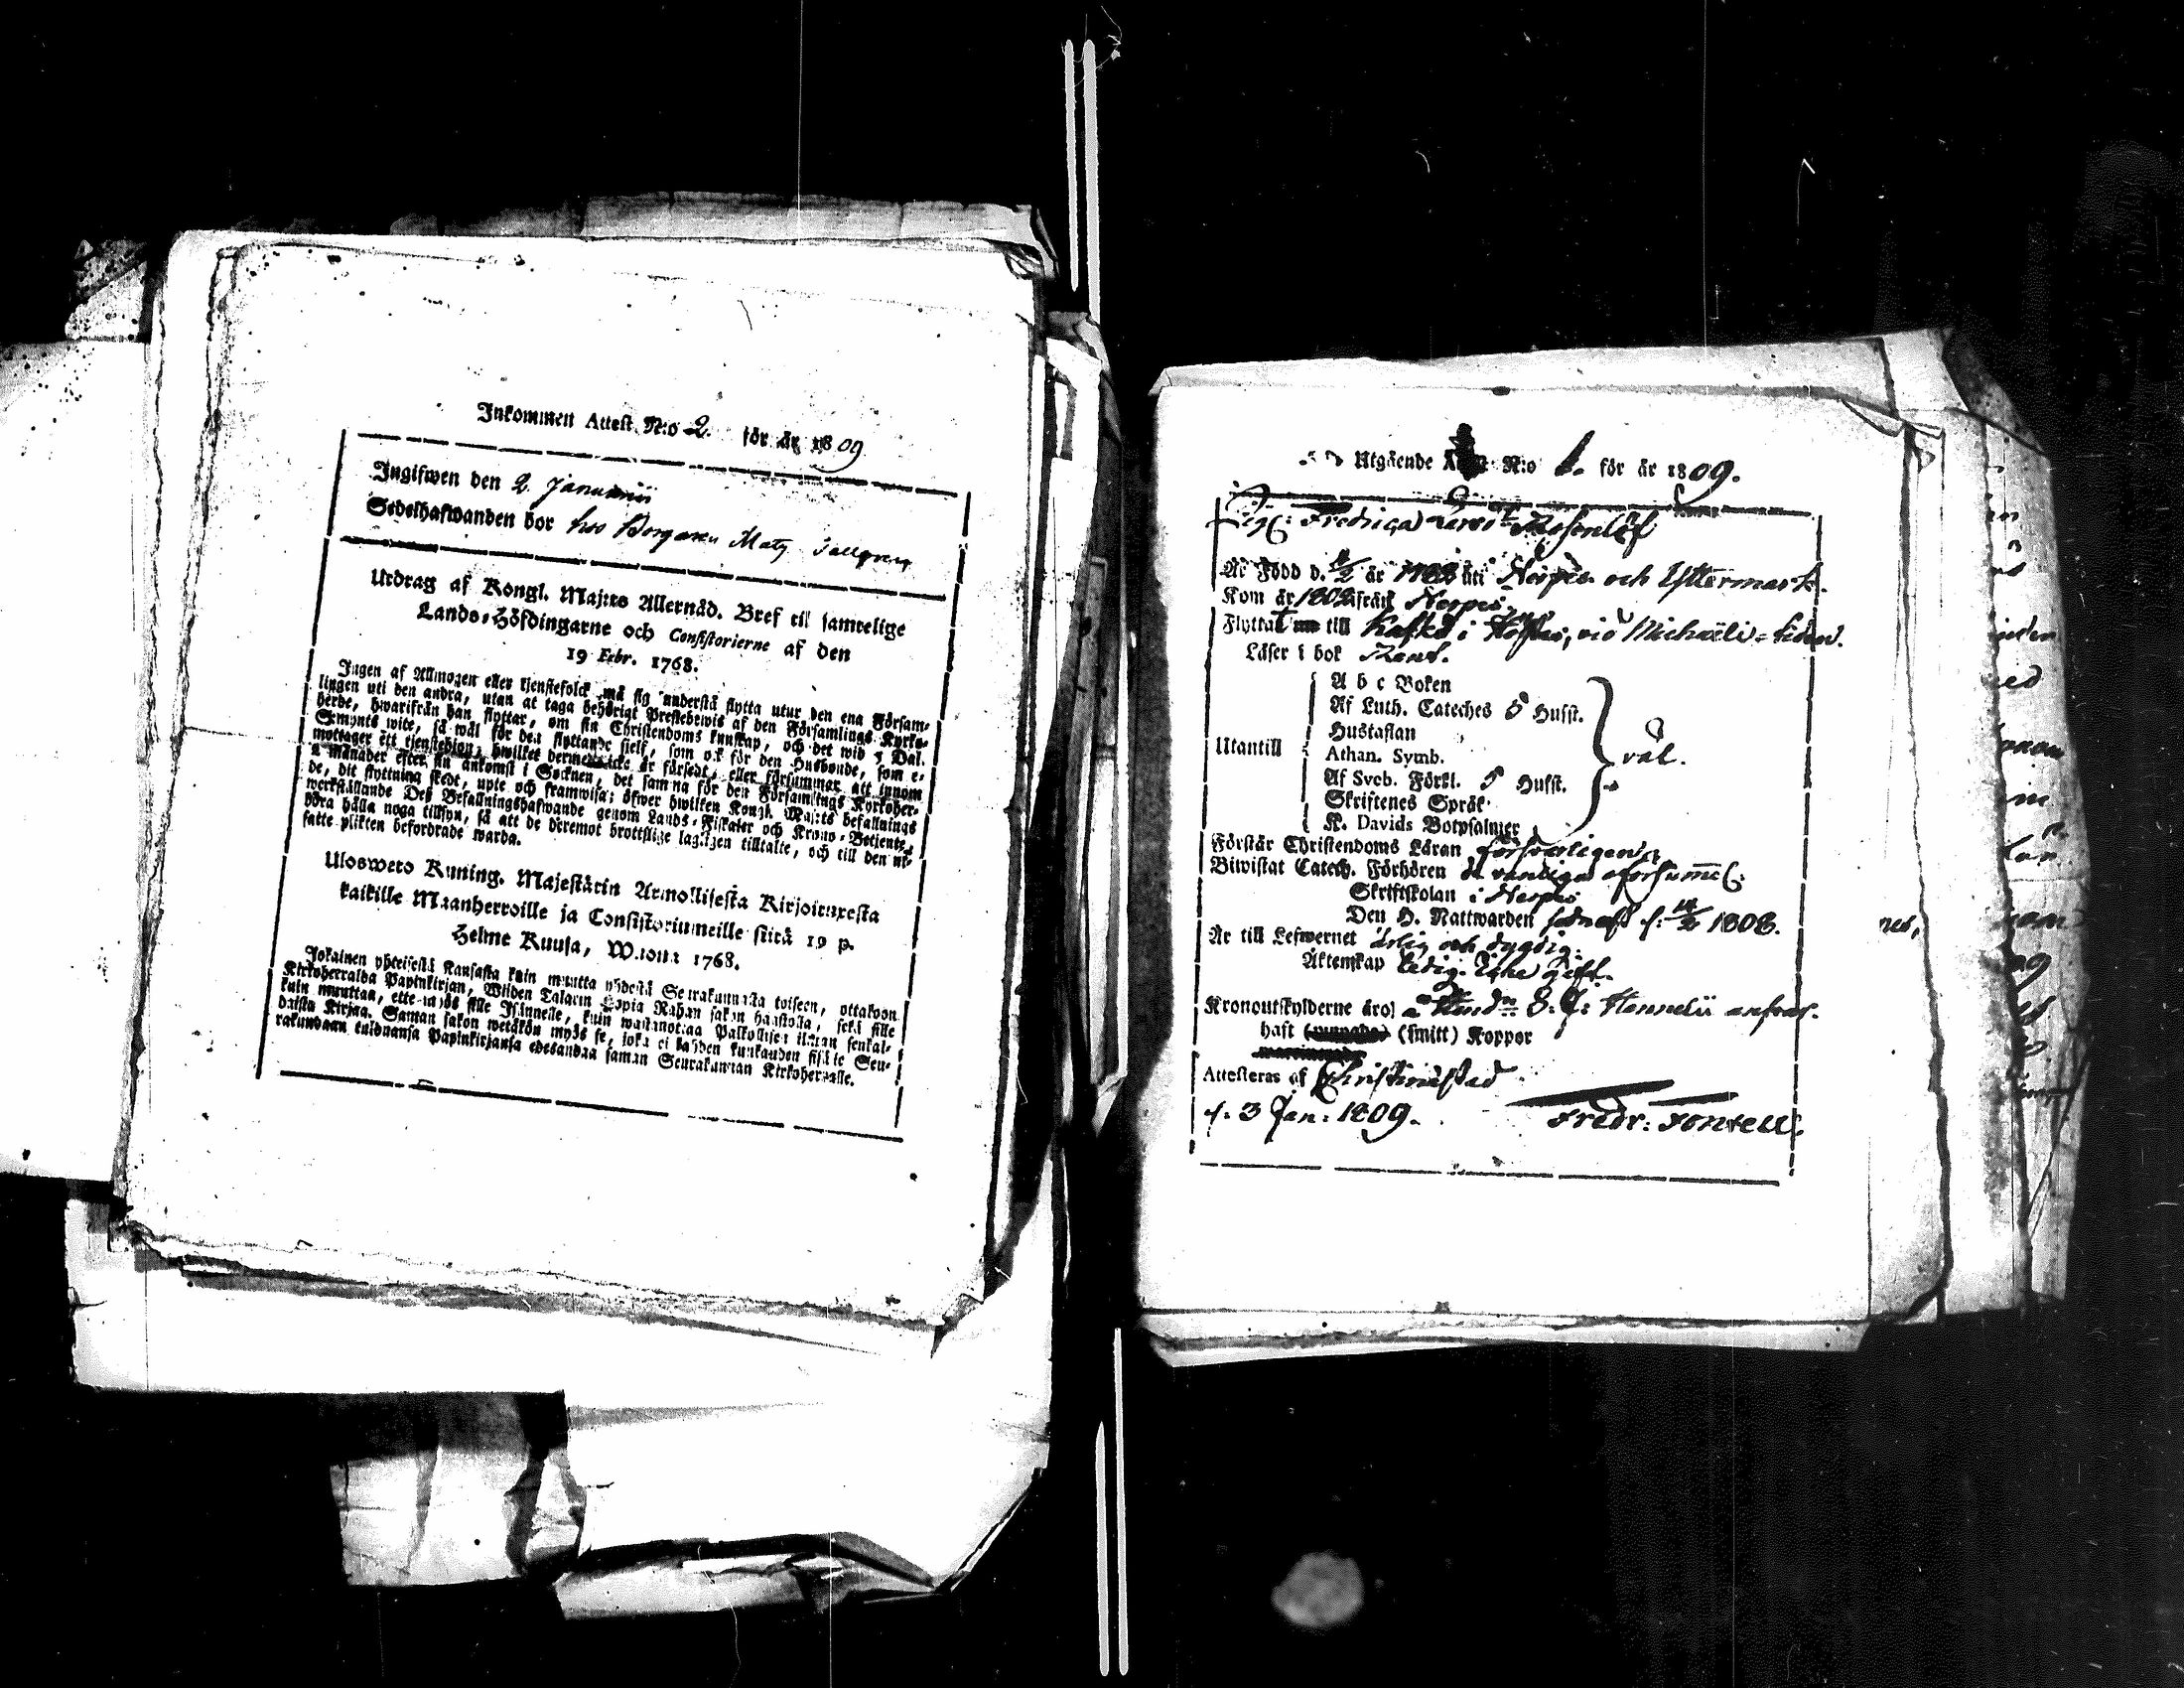 Inkommen Attest N:o 2. för år 1809
Ingifwen den 2 Januarii
Sedelhafwanden bor hos Borgaren Mats
Utdrag af Kongl. Maj:ts Allernåd. Bref til samtelige
Lands-Höfdingarne och Consistorierne af den
19 Febr. 1768.
Ingen af Allmogen eller tjenstefolck må sig understå flytta utur den ena Försam-
lingen uti den andra, utan at taga behörigt Prestebewis af den Församlings Kyrko-
herde, hwarifrån han flyttar, om sin Christendoms kunskap, och det wid 5 Dal.
S:mynts wite, så wäl för den flyttande sielf, som ock för den Husbonde, som e-
mottager ett tjenstehion, hwilket dermed icke är försedt, eller försummar att innom
2 månader efter sin ankomst i Socknen, det samma för den Församlings Kyrkoher-
de, dit flyttning skedt, upte och framwisa; öfwer hwilken Kongl. Maj:ts befallnings
werkställande Deß Befallningshafwande genom Lands-Fiskaler och Krono-Betjente
böra hålla noga tillsyn, så att de deremot brottslige lagligen tilltalte, och till den ut-
satte plikten befordrade warda.
Ulosweto Kuning. Majestätin Armollisesta Kirjoituxesta
kaikille Maanherroille ja Consistoriumeille siitä 19 p.
Helme Kuusa, Wuonna 1768.
Jokainen yhteisestä Kansasta kuin muutta yhdestä Seurakunnasta toiseen, ottakoon
Kirkoherralda Papinkirjan, Wiiden Talarin Hopia Rahan sakon haastolla, sekä sille
kuin muuttaa, ette-myös sille Isännelle, kuin wastanottaa Palkollisen ilman senkal-
daista Kirjaa. Saman sakon wetäkön myös se, joka ei kahden kuukauden sisälle Seu-
rakundaan tulduansa Papinkirjansa edesandaa saman Seurakunnan Kirkoherralle.
Utgående N:o 1. för år 1809.
Pig: Fredrica Rosenlöf
Är Född d. år uti Nerpes och Yttermark.
Kom år 1802 ifrån Nerpes.
Flyttat till Kaskö i Nerpes, vid Michaëli-tiden.
Läser i bok Rent.
Utantill
A b c Boken
Af Luth. Cateches 5 Hufst.
Hustaflan
Athan. Symb.
Af Sveb. Förkl. 5 Hufst.
Skriftenes Språk
K. Davids Botpsalmer
väl.
Förstår Christendoms Läran försvarligen.
Biwistat Catech. Förhören de vanliga
Skriftskolan i Nerpes
Den H. Nattwarden sednast d: 1808.
Är till Lefwernet ärlig och dygdig.
Äktenskap ledig. Icke gift.
Kronoutskylderne äro
haft (smitt) Koppor
Attesteras af Christinestad
d: 3 Jan: 1809. Fredr: Fontell.